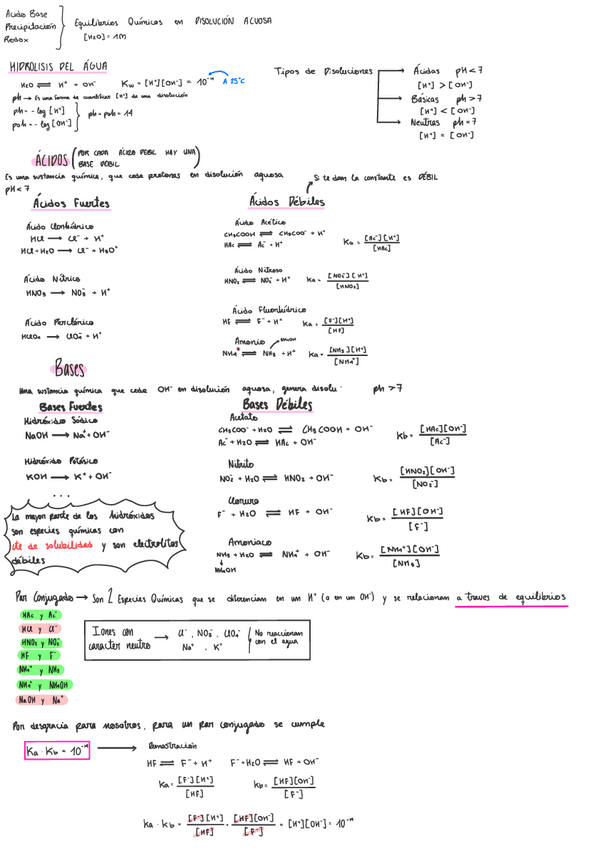 Ácido Base
Precipitación
Redox
Equilibrios Químicos en DISOLUCIÓN ACUOSA
[H2O] = 1M
HIDROLISIS DEL ÁGUA
H2O ⇌ H⁺ + OH⁻ Kw = [H⁺][OH⁻] = 10⁻¹⁴ A 25°C
pH → Es una forma de cuantificar [H⁺] de una disolución
pH = - log [H⁺]
pOH = - log [OH⁻]
pH + pOH = 14
Tipos de Disoluciones
Ácidas pH < 7
[H⁺] > [OH⁻]
Básicas pH > 7
[H⁺] < [OH⁻]
Neutras pH = 7
[H⁺] = [OH⁻]
ÁCIDOS (POR CADA ÁCIDO DEBIL HAY UNA BASE DEBIL)
Es una sustancia química, que cede protones en disolución aquosa
pH < 7
Si te dan la constante es DÉBIL
Ácidos Fuertes
Ácido Clorhídrico
HCl → Cl⁻ + H⁺
HCl + H2O → Cl⁻ + H3O⁺
Ácido Nítrico
HNO3 → NO3⁻ + H⁺
Ácido Perclórico
HClO4 → ClO4⁻ + H⁺
Ácidos Débiles
Ácido Acético
CH3COOH ⇌ CH3COO⁻ + H⁺
HAc ⇌ Ac⁻ + H⁺ Ka = [Ac⁻][H⁺] / [HAc]
Ácido Nitroso
HNO2 ⇌ NO2⁻ + H⁺ Ka = [NO2⁻][H⁺] / [HNO2]
Ácido Fluorhídrico
HF ⇌ F⁻ + H⁺ Ka = [F⁻][H⁺] / [HF]
Amonio
NH4OH
NH4⁺ ⇌ NH3 + H⁺ Ka = [NH3][H⁺] / [NH4⁺]
BASES
Una sustancia química que cede OH⁻ en disolución aquosa, genera disolu· pH > 7
Bases Fuertes
Hidróxido Sódico
NaOH → Na⁺ + OH⁻
Hidróxido Potásico
KOH → K⁺ + OH⁻
...
La mayor parte de los hidróxidos
son especies químicas con
cte de solubilidad y son electrolitos
débiles
Bases Débiles
Acetato
CH3COO⁻ + H2O ⇌ CH3COOH + OH⁻
Ac⁻ + H2O ⇌ HAc + OH⁻ Kb = [HAc][OH⁻] / [Ac⁻]
Nitrito
NO2⁻ + H2O ⇌ HNO2 + OH⁻ Kb = [HNO2][OH⁻] / [NO2⁻]
Cloruro
F⁻ + H2O ⇌ HF + OH⁻ Kb = [HF][OH⁻] / [F⁻]
Amoniaco
NH3 + H2O ⇌ NH4⁺ + OH⁻ Kb = [NH4⁺][OH⁻] / [NH3]
NH4OH
Par Conjugado → Son 2 Especies Químicas que se diferencian en un H⁺ (o en un OH⁻) y se relacionan a traves de equilibrios
HAc y Ac⁻
HCl y Cl⁻
HNO2 y NO2⁻
HF y F⁻
NH4⁺ y NH3
NH4⁺ y NH4OH
NaOH y Na⁺
Iones con
caracter neutro → Cl⁻, NO3⁻, ClO4⁻
Na⁺, K⁺
No reaccionan
con el agua
Por desgracia para nosotros, para un par conjugado se cumple
Ka · Kb = 10⁻¹⁴ → Demostración
HF ⇌ F⁻ + H⁺ F⁻ + H2O ⇌ HF + OH⁻
Ka = [F⁻][H⁺] / [HF] Kb = [HF][OH⁻] / [F⁻]
Ka · Kb = [F⁻][H⁺] / [HF] · [HF][OH⁻] / [F⁻] = [H⁺][OH⁻] = 10⁻¹⁴